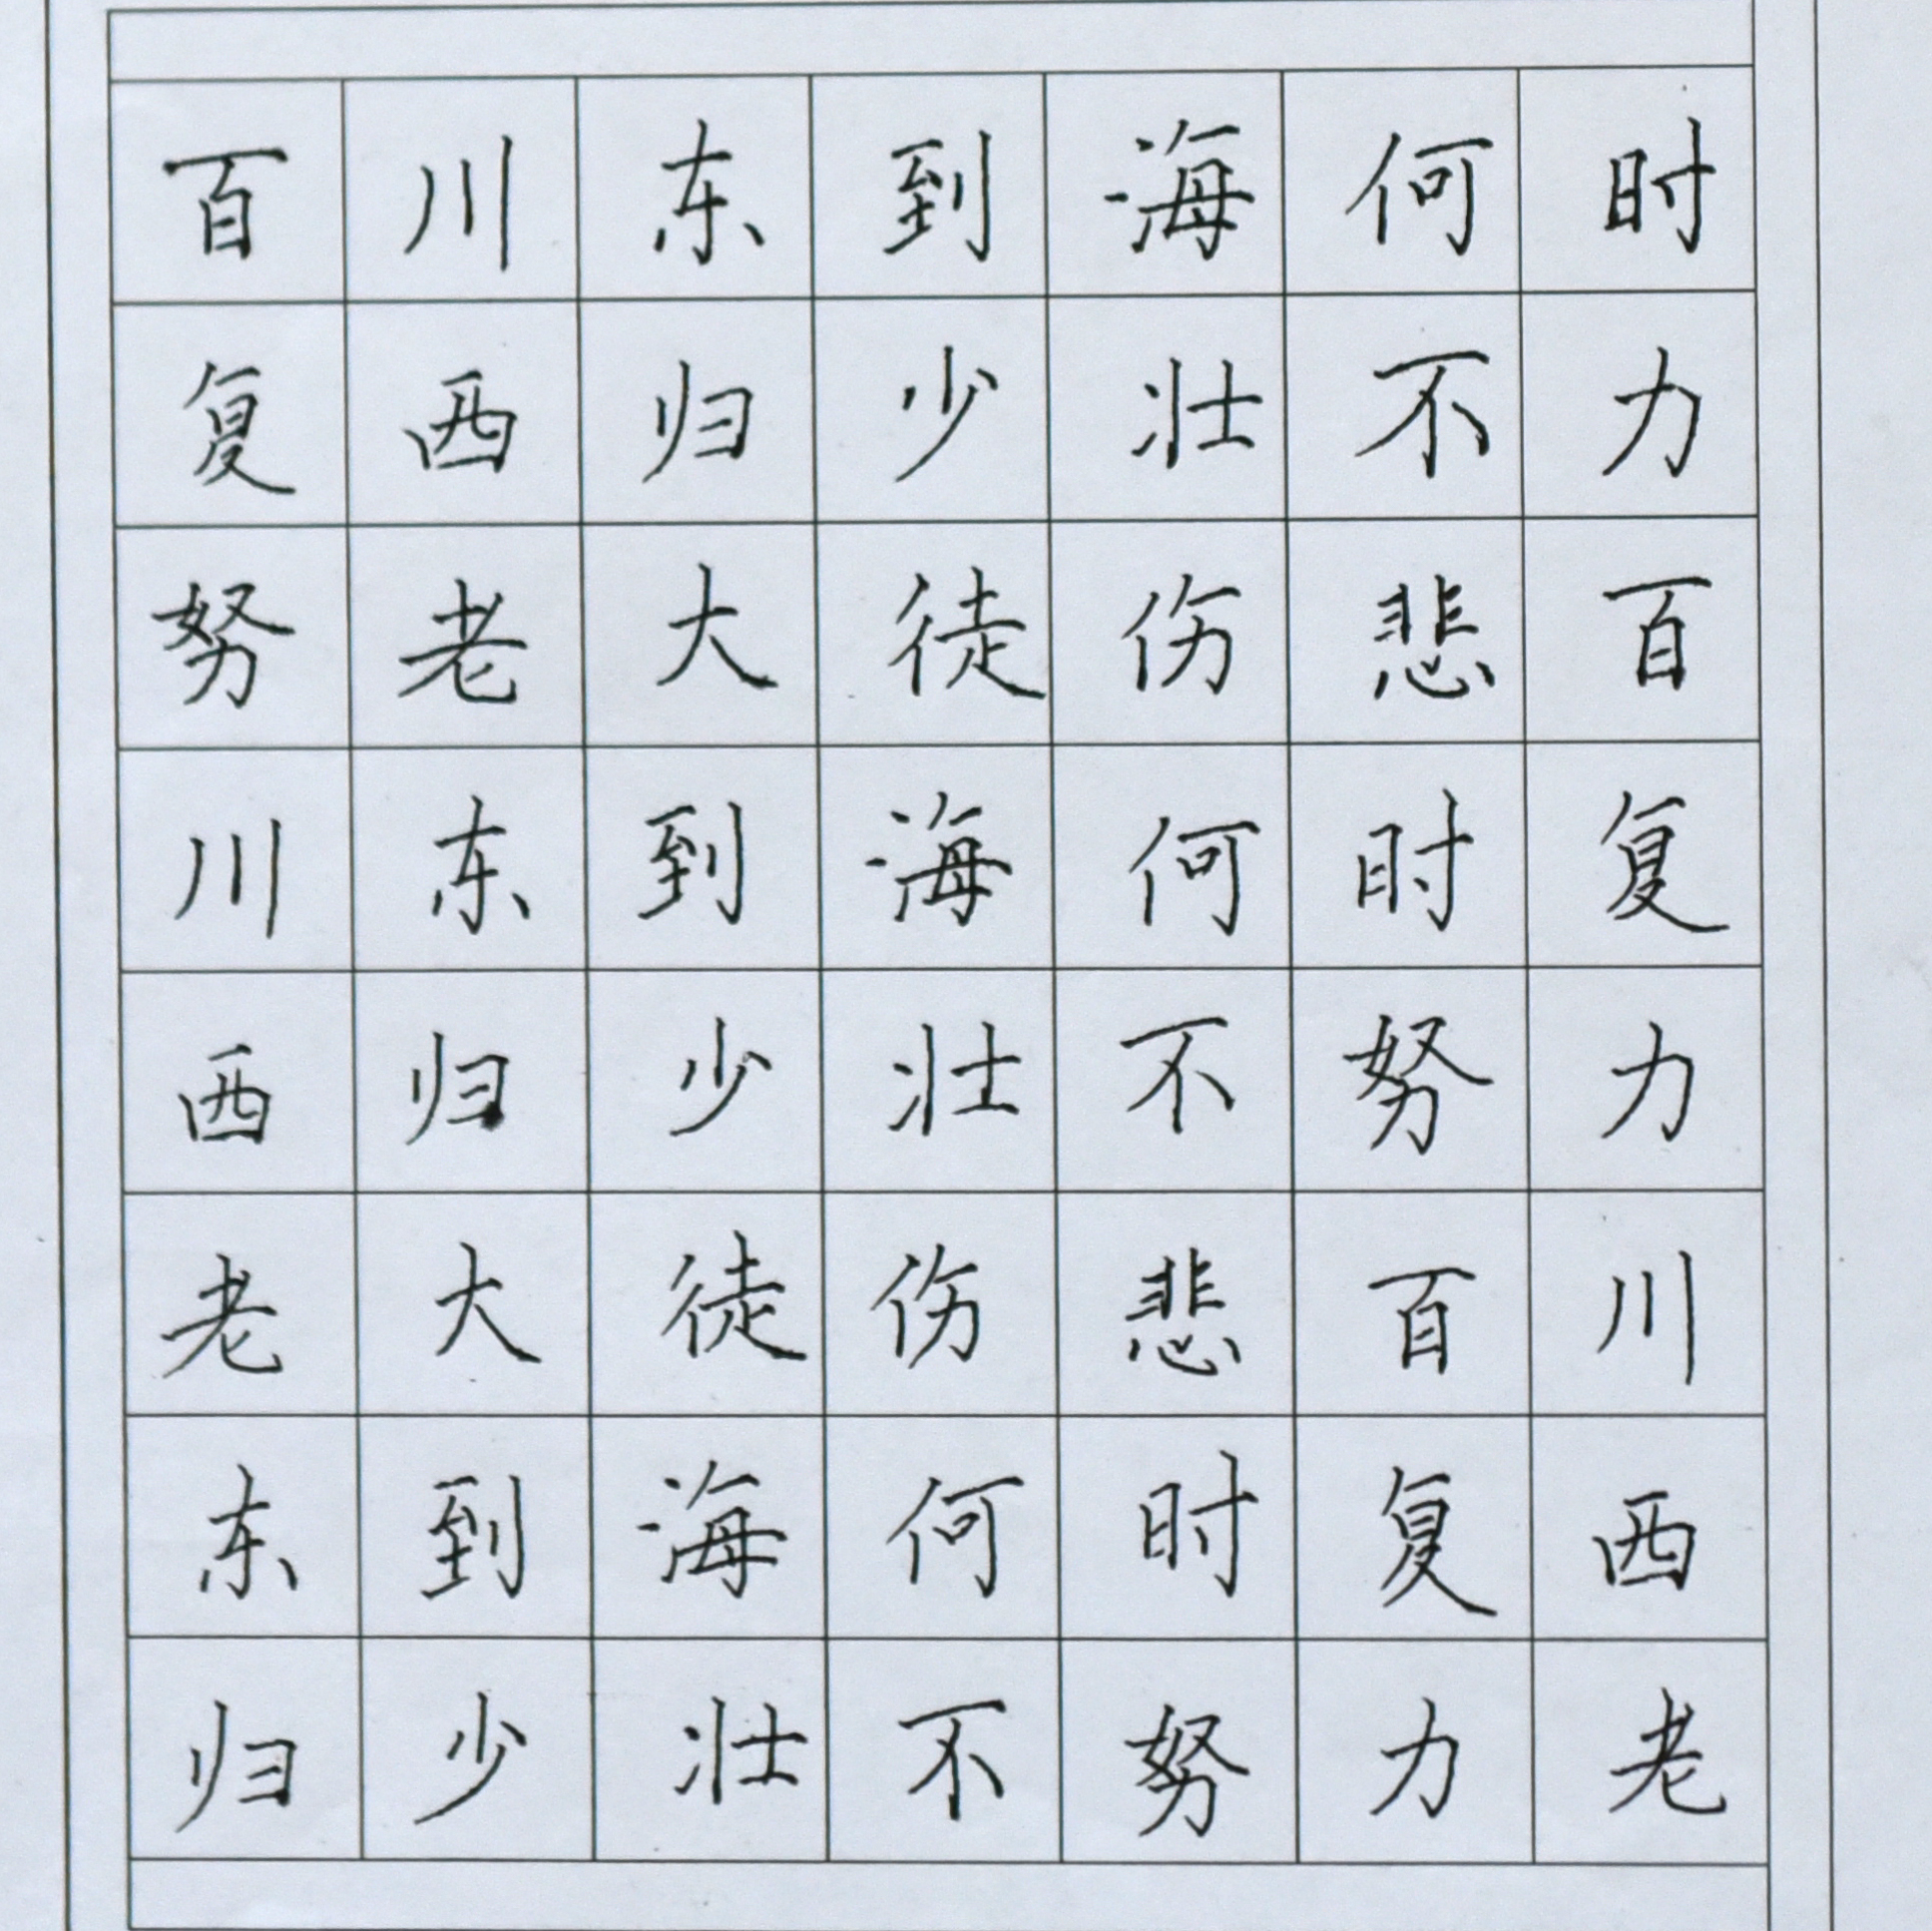 百川东到海何时
复西归少壮不力
努老大徒伤悲百
川东到海何时复
西归少壮不努力
老大徒伤悲百川
东到海何时复西
归少壮不努力老